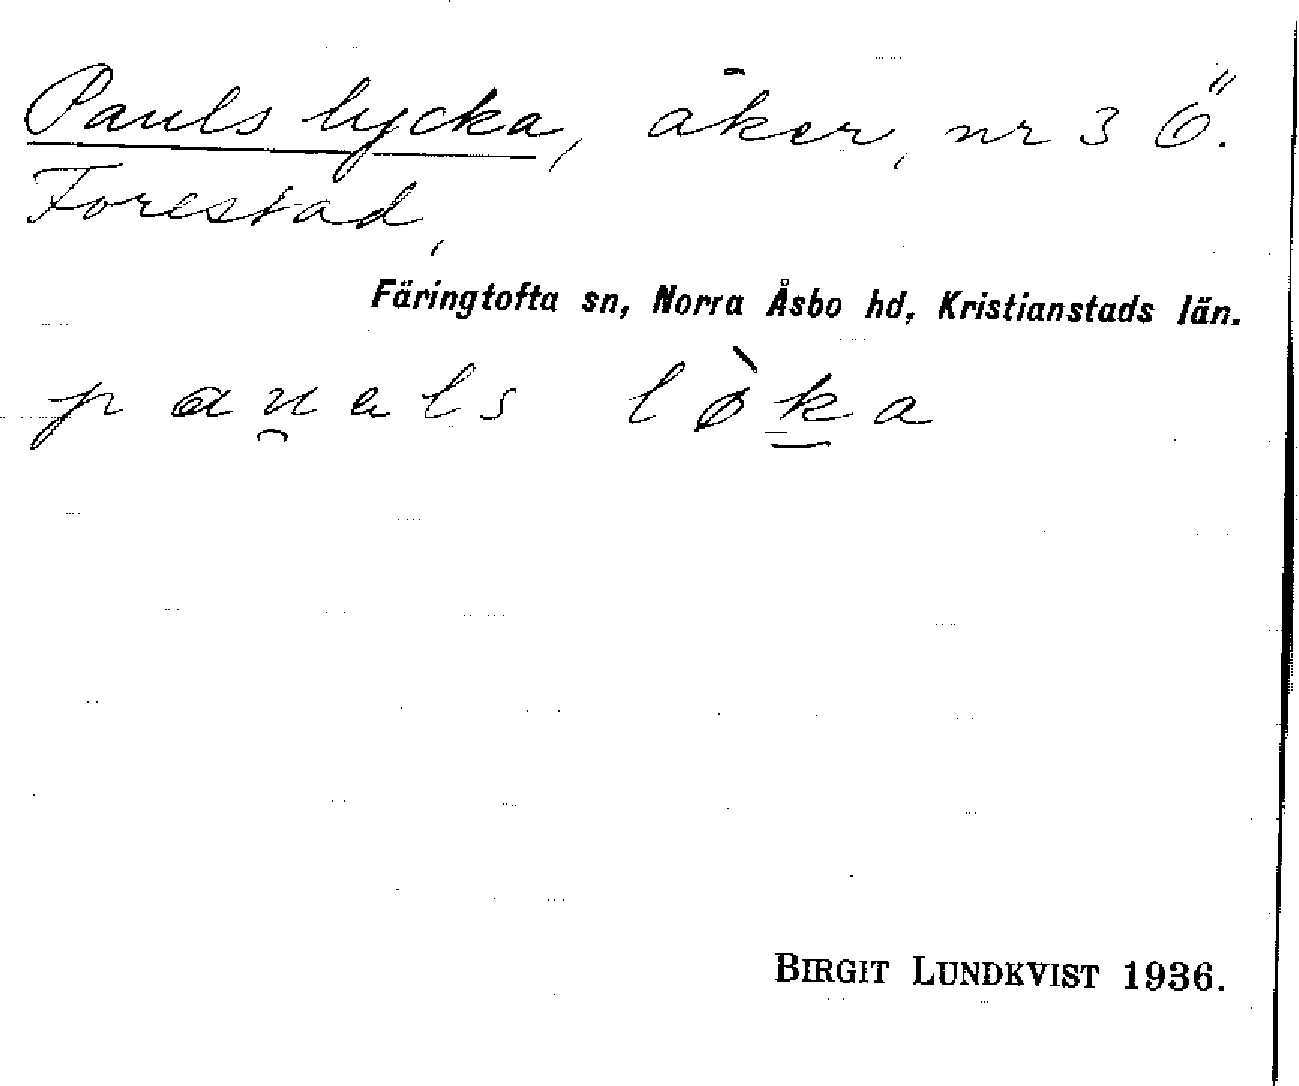 Pauls lycka, åker, nr 3 Ö.
Forestad,
Färingtofta sn, Norra Åsbo hd, Kristianstads län.
pau̯als lø̀k̲a
BIRGIT LUNDKVIST 1936.